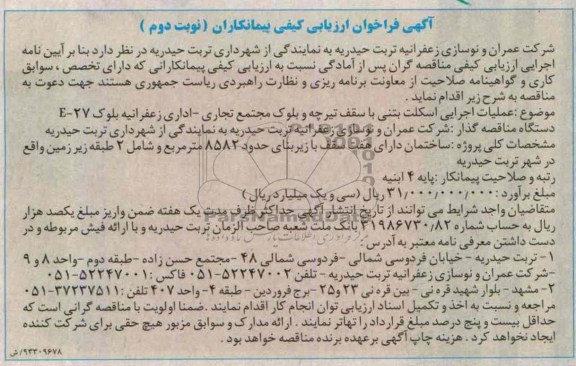 آگهی فراخوان ارزیابی کیفی پیمانکاران ( نوبت دوم )
شرکت عمران و نوسازی زعفرانیه تربت حیدریه به نمایندگی از شهرداری تربت حیدریه در نظر دارد بنا بر آیین نامه
اجرایی ارزیابی کیفی مناقصه گران پس از آمادگی نسبت به ارزیابی کیفی پیمانکارانی که دارای تخصص ، سوابق
کاری و گواهینامه صلاحیت از معاونت برنامه ریزی و نظارت راهبردی ریاست جمهوری هستند جهت دعوت به
مناقصه به شرح زیر اقدام نماید .
موضوع :عملیات اجرایی اسکلت بتنی با سقف تیرچه و بلوک مجتمع تجاری -اداری زعفرانیه بلوک E-۲۷
دستگاه مناقصه گذار :شرکت عمران و نوسازی زعفرانیه تربت حیدریه به نمایندگی از شهرداری تربت حیدریه
مشخصات کلی پروژه :ساختمان دارای هفت سقف با زیربنای حدود ۸۵۸۲ مترمربع و شامل ۲ طبقه زیر زمین واقع
در شهر تربت حیدریه
رتبه و صلاحیت پیمانکار :پایه ۴ ابنیه
مبلغ برآورد : ۳۱/۰۰۰/۰۰۰/۰۰۰ ریال (سی و یک میلیارد ریال )
متقاضیان واجد شرایط می توانند از تاریخ انتشار آگهی حداکثر ظرف مدت یک هفته ضمن واریز مبلغ یکصد هزار
ریال به حساب شماره ۳۱۹۸۶۷۳۰/۸۲ بانک ملت شعبه صاحب الزمان تربت حیدریه و با ارائه فیش مربوطه و در
دست داشتن معرفی نامه معتبر به آدرس :
۱- تربت حیدریه - خیابان فردوسی شمالی -فردوسی شمالی ۴۸ -مجتمع حسن زاده -طبقه دوم -واحد ۸ و ۹
-شرکت عمران و نوسازی زعفرانیه تربت حیدریه - تلفن ۵۲۲۴۷۰۰۲-۰۵۱ فاکس :۵۲۲۴۷۰۰۱-۰۵۱
۲- مشهد - بلوار شهید قره نی - بین قره نی ۲۳ و۲۵ -برج فروردین - طبقه ۴- واحد ۴۰۷ تلفن :۳۷۲۳۷۵۱۱-۰۵۱
مراجعه و نسبت به اخذ و تکمیل اسناد ارزیابی توان انجام کار اقدام نمایند .ضمنا اولویت با مناقصه گرانی است که
حداقل بیست و پنج درصد مبلغ قرارداد را تهاتر نمایند . ارائه مدارک و سوابق مزبور هیچ حقی برای شرکت کننده
ایجاد نخواهد کرد . هزینه چاپ آگهی برعهده برنده مناقصه خواهد بود .
۹۳۳۰۹۶۷۸/ش